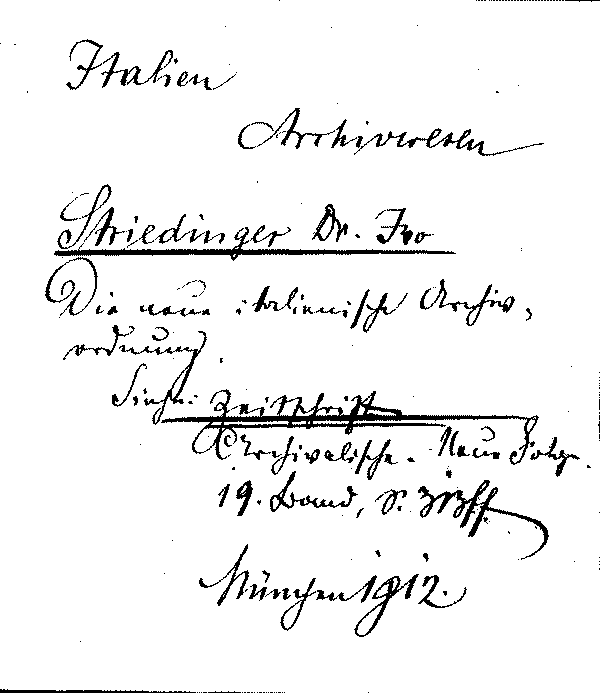 Italien
Archivwesen
Striedinger Dr. Ivo
Die neue italienische Archiv-
ordnung.
Siehe: Zeitschrift
Archivalische. Neue Folge.
19. Band, S. ff.
München 1912.